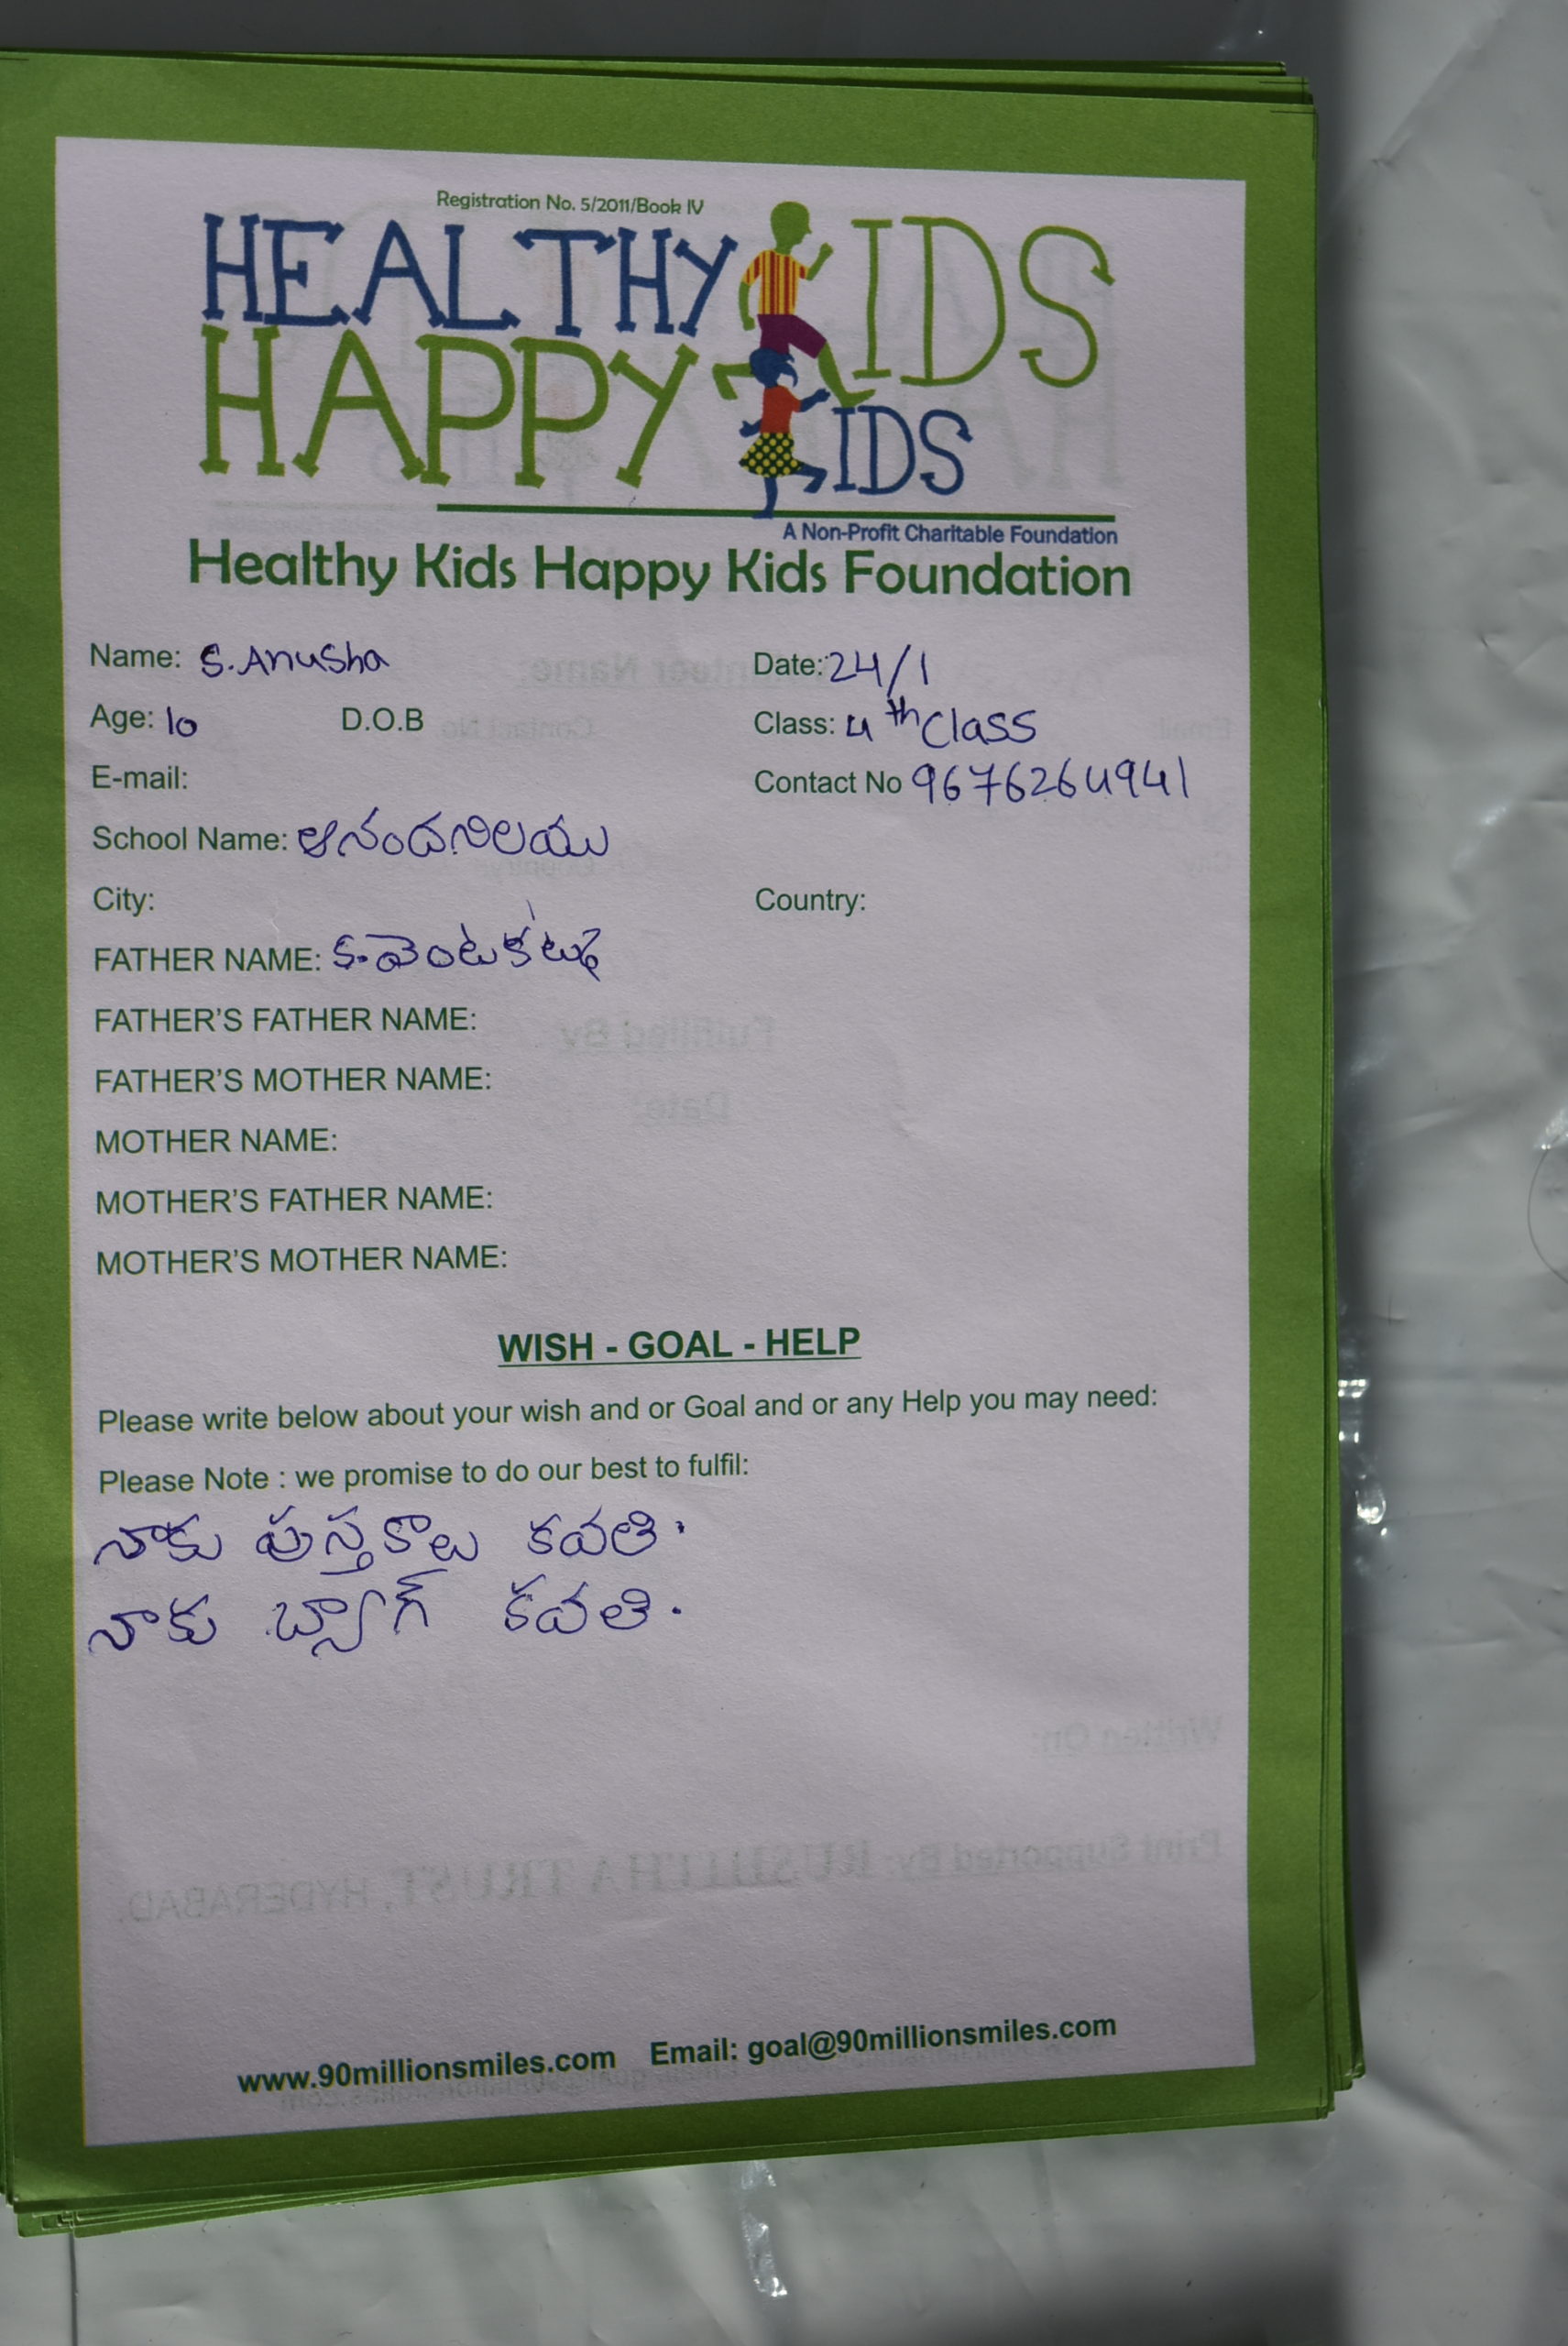 Registration No. 5/2011/Book IV
HEALTHY KIDS
HAPPY KIDS
A Non-Profit Charitable Foundation
Healthy Kids Happy Kids Foundation
Name: S.Anusha Date: 24/1
Age: 10 D.O.B Class: 4th Class
E-mail: Contact No 9676264941
School Name: ఆనందనిలయు
City: Country:
FATHER NAME:
FATHER'S FATHER NAME:
FATHER'S MOTHER NAME:
MOTHER NAME:
MOTHER'S FATHER NAME:
MOTHER'S MOTHER NAME:
WISH - GOAL - HELP
Please write below about your wish and or Goal and or any Help you may need:
Please Note : we promise to do our best to fulfil:
నాకు పుస్తకాలు కవతి.
నాకు బ్యాగ్ కవతి.
www.90millionsmiles.com Email: goal@90millionsmiles.com